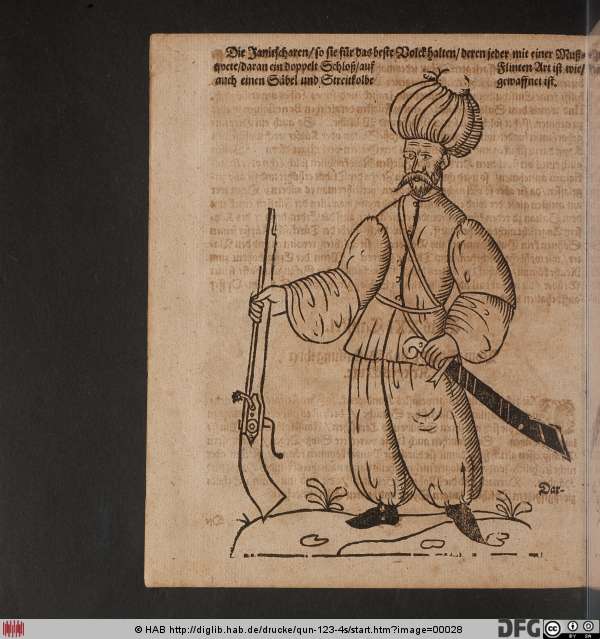 Die Janitscharen/ so sie für das beste Volck halten/ deren jeder mit einer Muß-
quete/ daran ein doppelt Schloß/ auf Flinten Art ist wie/
auch einen Säbel und Streitkolbe gewaffnet ist.
Dar-
© HAB http://diglib.hab.de/drucke/qun-123-4s/start.htm?image=00028
DFG
cc
BY SA